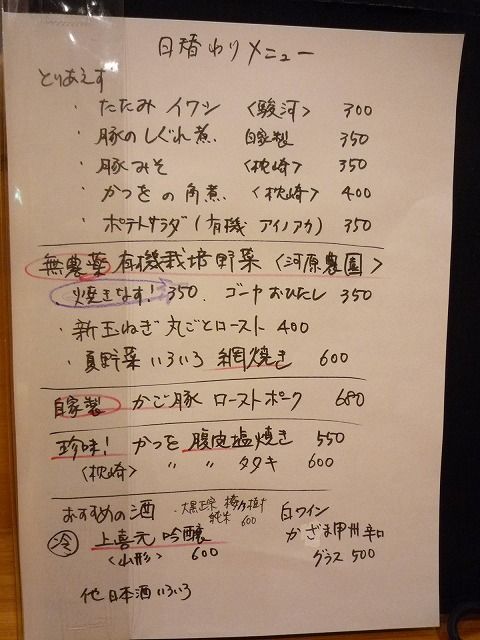 日替わりメニュー
とりあえず
・たたみイワシ 〈駿河〉 300
・豚のしぐれ煮 自家製 350
・豚みそ 〈枕崎〉 350
・かつをの角煮 〈枕崎〉 400
・ポテトサラダ(有機 アイノアカ) 350
無農薬 有機栽培野菜〈河原農園〉
焼きなす! 350. ゴーヤおひたし 350
・新玉ねぎ 丸ごとロースト 400
・夏野菜いろいろ 網焼き 600
自家製 かご豚 ローストポーク 680
珍味! かつを 腹皮塩焼き 550
〈枕崎〉 〃 〃 タタキ 600
おすすめの酒
・大黒正宗
純米 600
冷 上喜元 吟醸
〈山形〉 600
白ワイン
かざま甲州辛口
グラス 500
他日本酒いろいろ